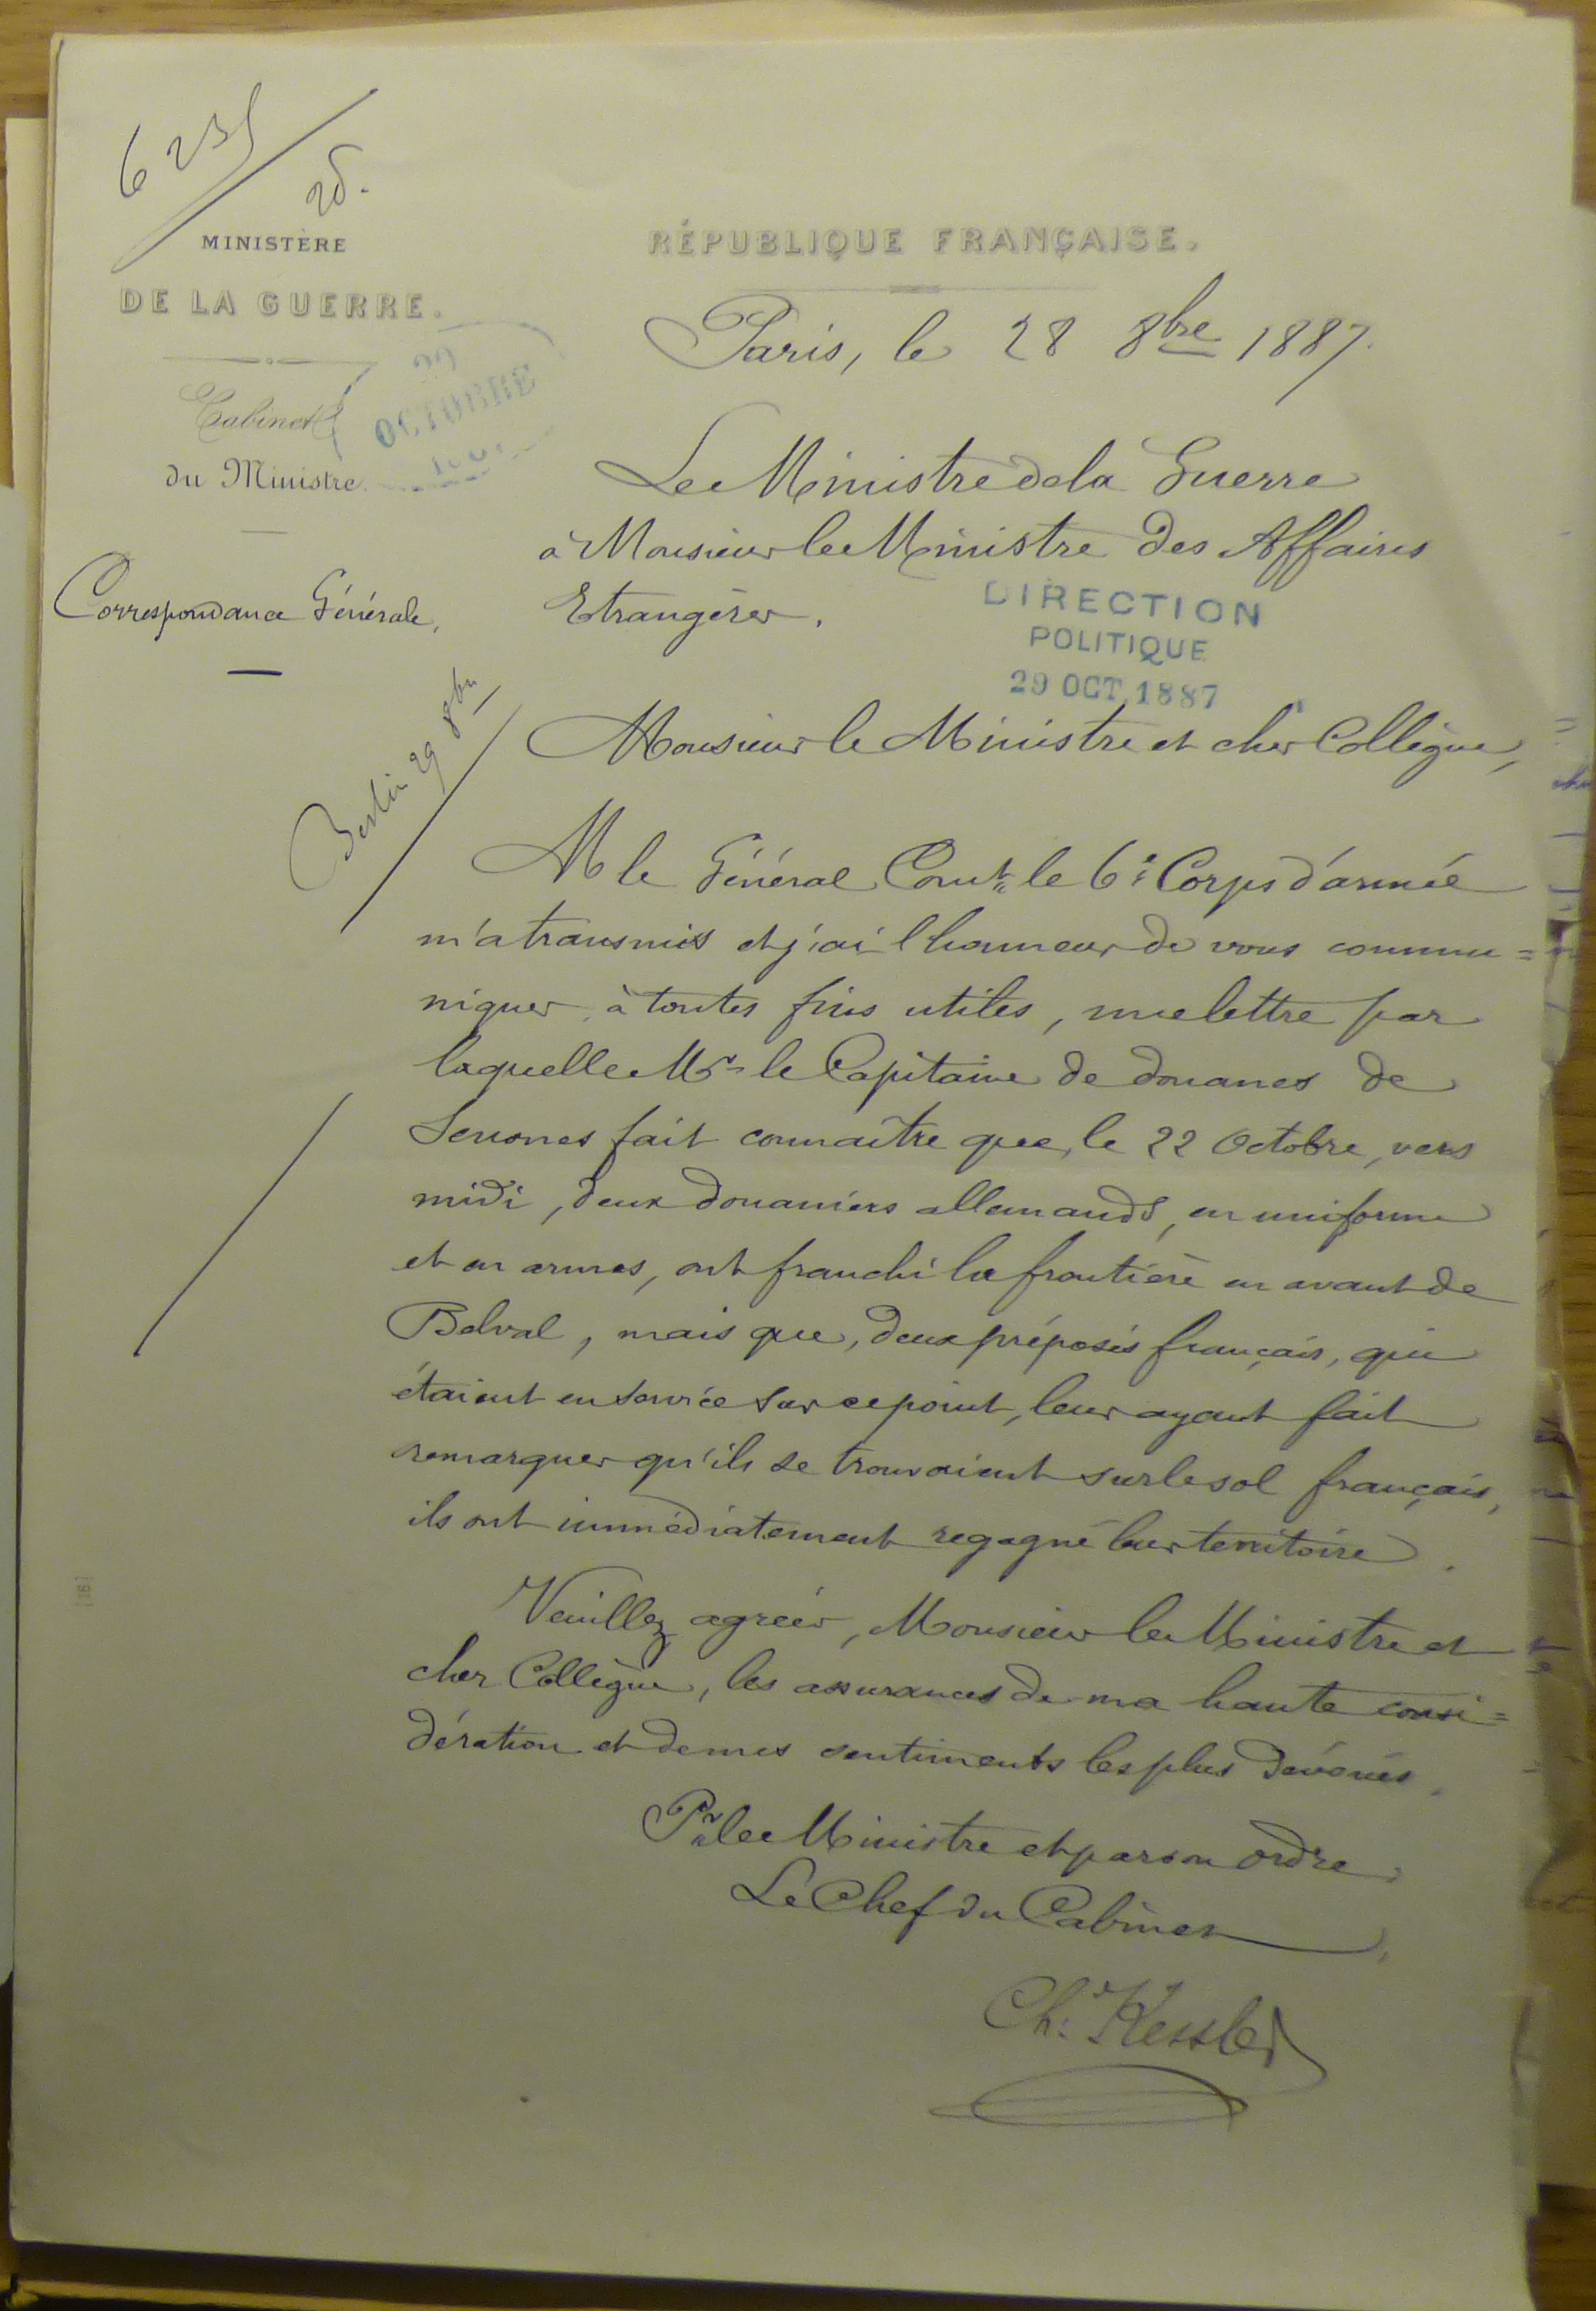 6 235
25.
MINISTÈRE
DE LA GUERRE.
Cabinet
du Ministre.
29
OCTOBRE
Correspondance Générale.
RÉPUBLIQUE FRANÇAISE.
Paris, le 28 8bre 1887.
Le Ministre de la Guerre
à Monsieur le Ministre des Affaires
Etrangères.
DIRECTION
POLITIQUE
29 OCT. 1887
Berlin 29 8bre
Monsieur le Ministre et cher Collègue,
M le Général Comt le 6e Corps d'armée
m'a transmis et j'ai l'honneur de vous commu=
niquer, à toutes fins utiles, une lettre par
laquelle Mr le Capitaine de douanes de
Senones fait connaître que, le 22 Octobre, vers
midi, deux douaniers allemands, en uniforme
et en armes, ont franchi la frontière en avant de
Belval, mais que, deux préposés français, qui
étaient en service sur ce point, leur ayant fait
remarquer qu'ils se trouvaient sur le sol français,
ils ont immédiatement regagné leur territoire.
Veuillez agréer, Monsieur le Ministre et
cher Collègue, les assurances de ma haute consi=
dération et de mes sentiments les plus dévoués.
Pr le Ministre et par son ordre,
Le Chef du Cabinet,
Ch. Kessler